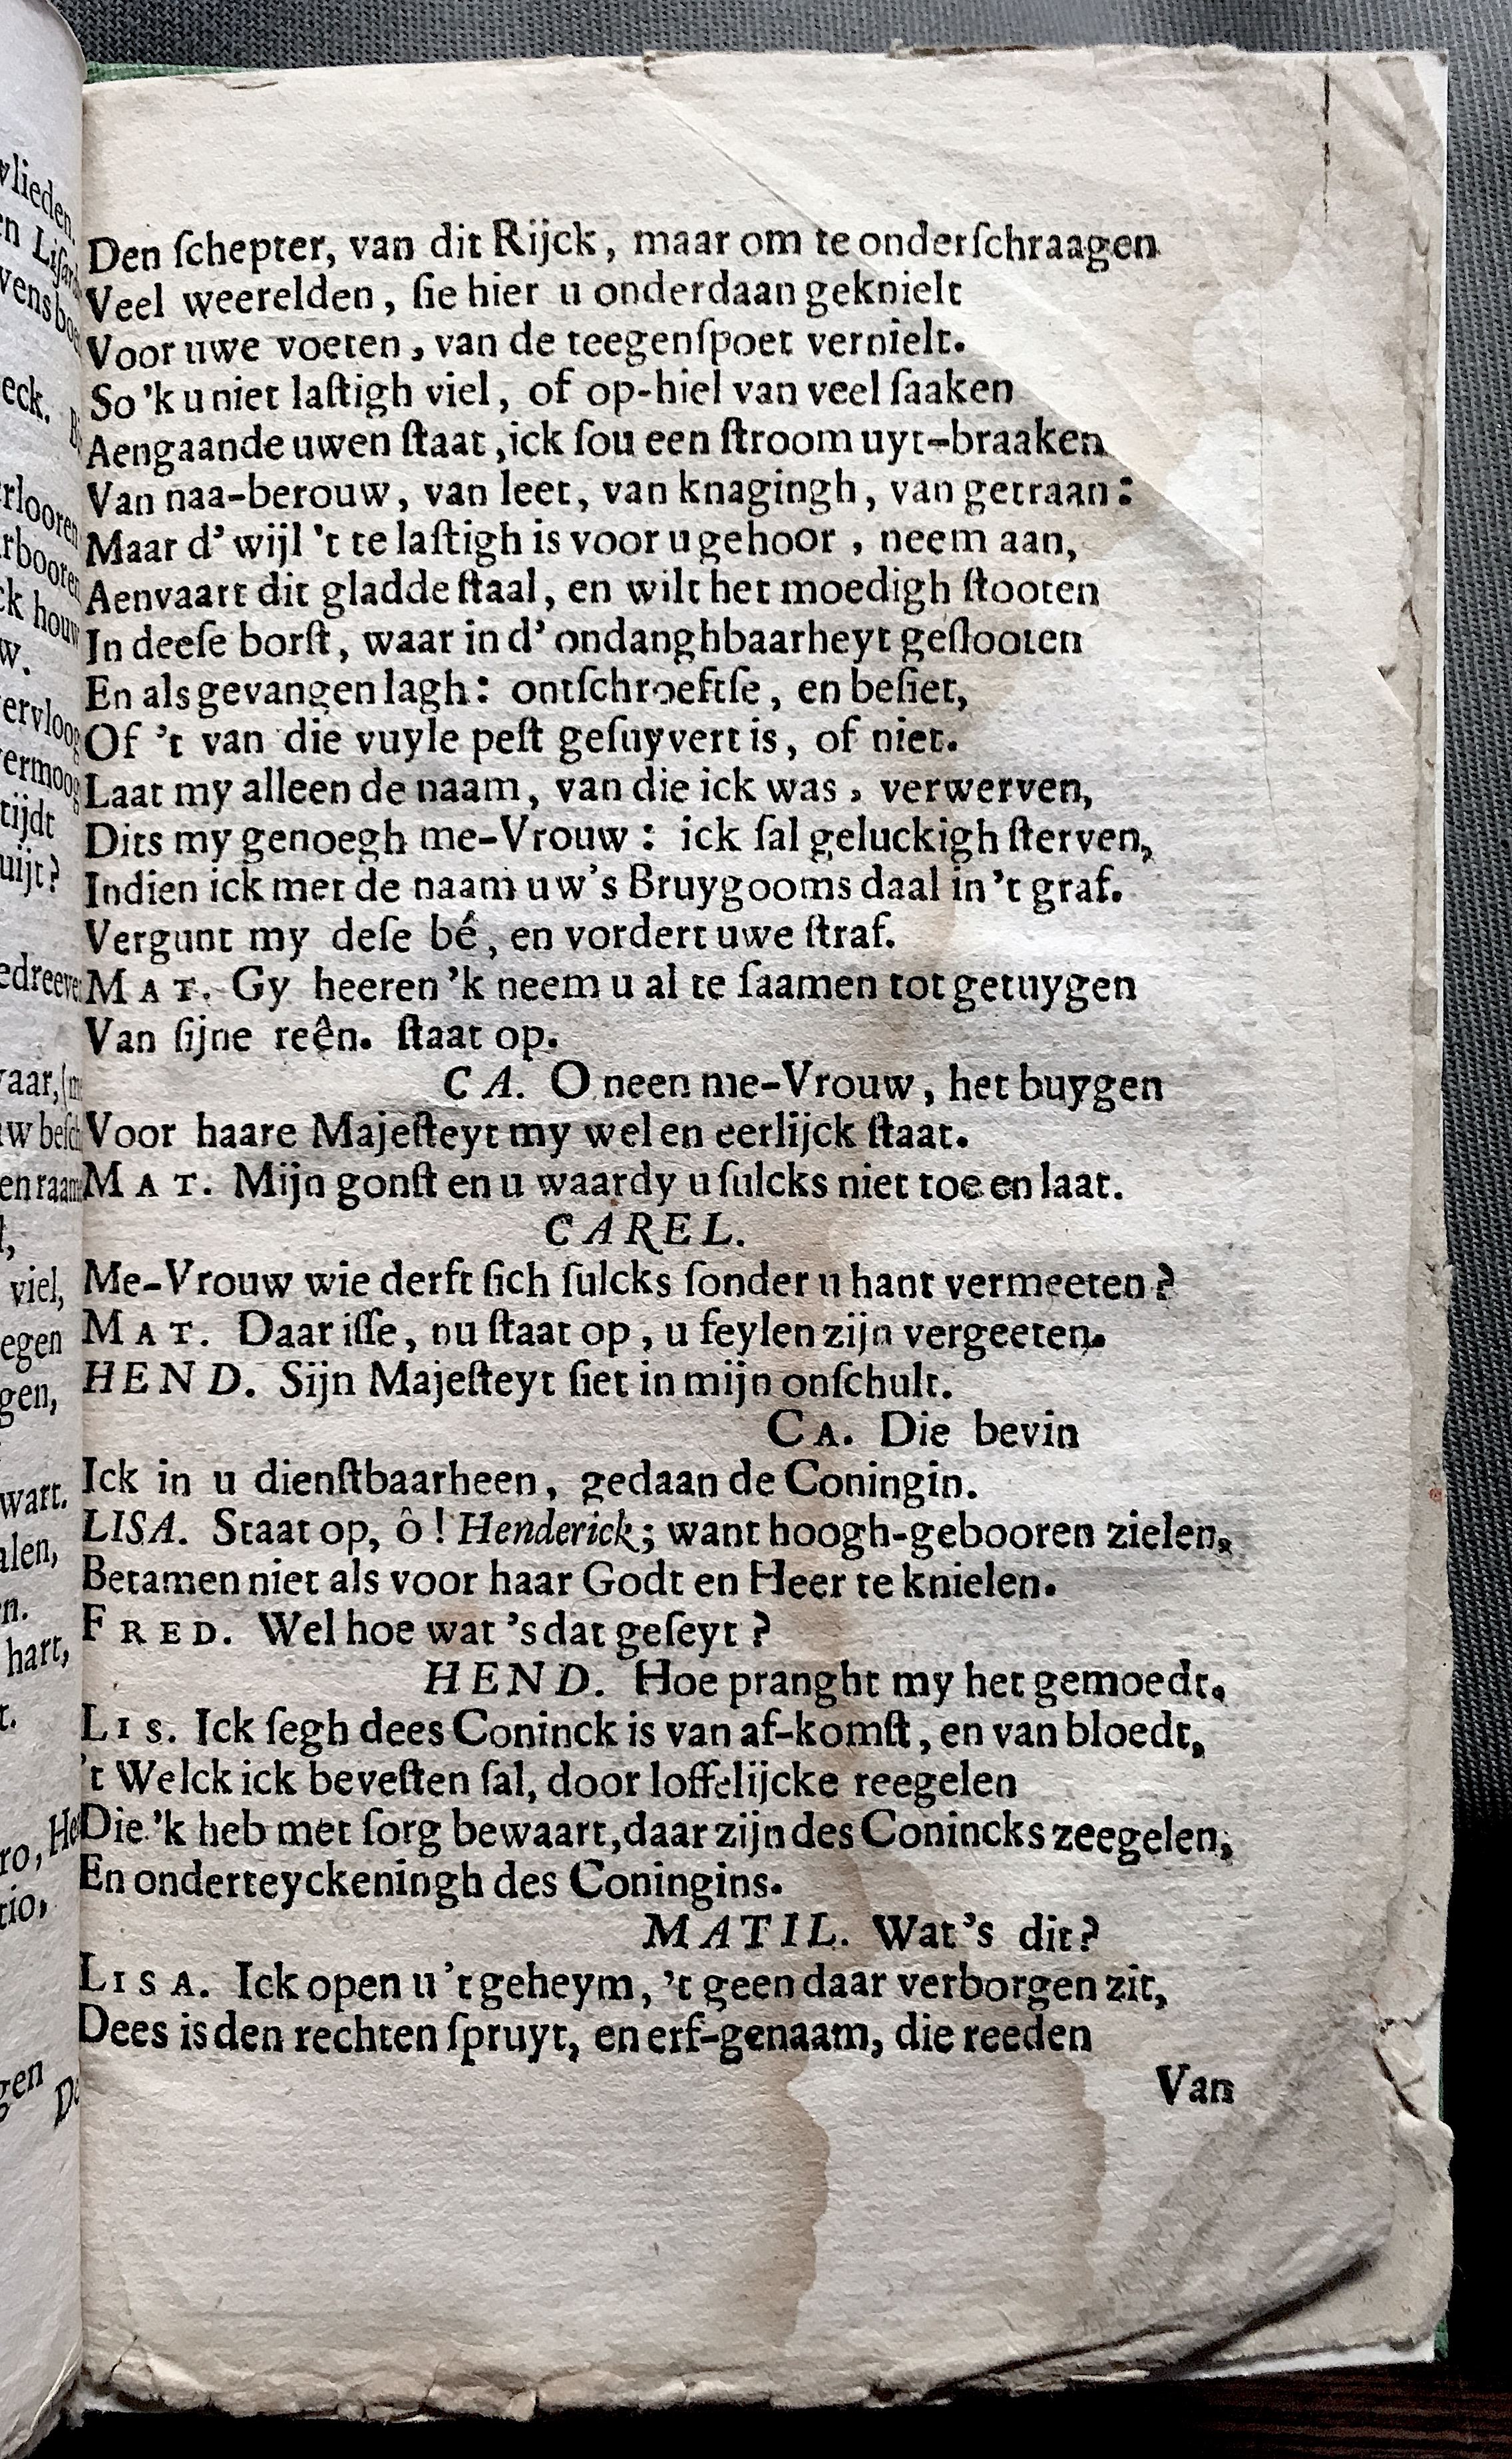 Den ſchepter, van dit Rijck, maar om te onderſchraagen
Veel weerelden, ſie hier u onderdaan geknielt
Voor uwe voeten, van de teegenſpoet vernielt.
So 'k u niet laſtigh viel, of op-hiel van veel ſaaken
Aengaande uwen ſtaat, ick ſou een ſtroom uyt-braaken
Van naa-berouw, van leet, van knagingh, van getraan:
Maar d' wijl 't te laſtigh is voor u gehoor, neem aan,
Aenvaart dit gladde ſtaal, en wilt het moedigh ſtooten
In deeſe borſt, waar in d' ondanghbaarheyt geſlooten
En als gevangen lagh: ontſchroeftſe, en beſiet,
Of 't van die vuyle peſt geſuyvert is, of niet.
Laat my alleen de naam, van die ick was, verwerven,
Dits my genoegh me-Vrouw: ick ſal geluckigh ſterven,
Indien ick met de naam uw's Bruygooms daal in 't graf.
Vergunt my deſe bé, en vordert uwe ſtraf.
MAT. Gy heeren 'k neem u al te ſaamen tot getuygen
Van ſijne reên. ſtaat op.
CA. O neen me-Vrouw, het buygen
Voor haare Majeſteyt my wel en eerlijck ſtaat.
MAT. Mijn gonſt en u waardy u ſulcks niet toe en laat.
CAREL.
Me-Vrouw wie derft ſich ſulcks ſonder u hant vermeeten?
MAT. Daar iſſe, nu ſtaat op, u feylen zijn vergeeten.
HEND. Sijn Majeſteyt ſiet in mijn onſchult.
CA. Die bevin
Ick in u dienſtbaarheen, gedaan de Coningin.
LISA. Staat op, ô! Henderick; want hoogh-gebooren zielen,
Betamen niet als voor haar Godt en Heer te knielen.
FRED. Wel hoe wat 's dat geſeyt?
HEND. Hoe pranght my het gemoedt.
LIS. Ick ſegh dees Coninck is van af-komſt, en van bloedt,
't Welck ick beveſten ſal, door loffelijcke reegelen
Die 'k heb met ſorg bewaart, daar zijn des Conincks zeegelen,
En onderteyckeningh des Coningins.
MATIL. Wat's dit?
LISA. Ick open u 't geheym, 't geen daar verborgen zit,
Dees is den rechten ſpruyt, en erf-genaam, die reeden
Van